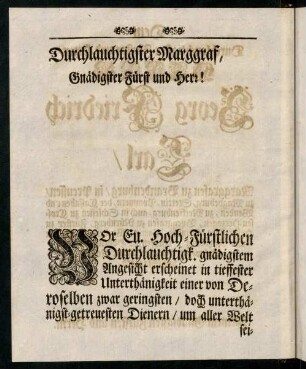 Durchlauchtigster Marggraf,
Gnädigster Fürst und Herr!
VOr Eu. Hoch-Fürstlichen
Durchlauchtigk. gnädigstem
Angesicht erscheinet in tieffester
Unterthänigkeit einer von De-
roselben zwar geringsten / doch unterthä-
nigst-getreuesten Dienern / um aller Welt
sei-